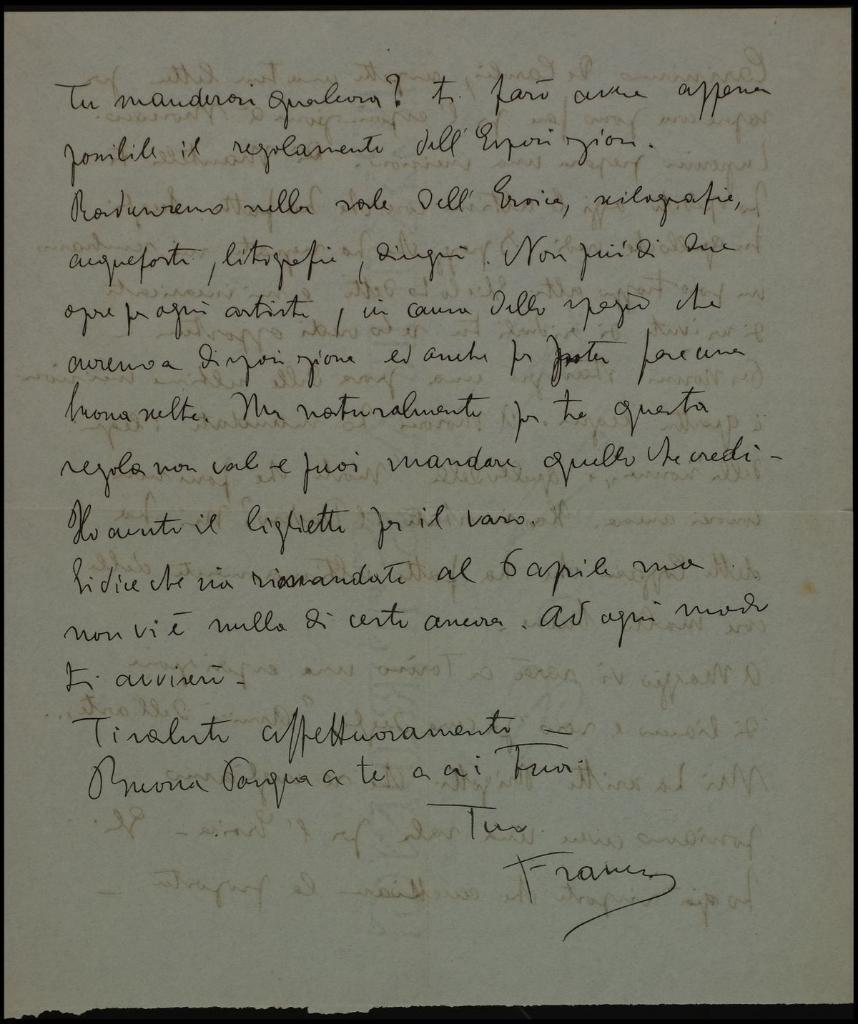 Tu manderai qualcosa? ti farò avere appena
possibile il regolamento dell'Esposizione.
Raduneremo nella sala dell'Eroica, xilografie,
acqueforti, litografie, disegni. Non più di due
opere per ogni artista, in causa dello spazio che
avremo a disposizione ed anche per poter fare una
buona scelta. Ma naturalmente per te questa
regola non vale e puoi mandare quello che credi -
Ho avuto il biglietto per il varo.
Si dice che sia rimandato al 6 aprile ma
non vi è nulla di certo ancora. Ad ogni modo
ti avviserò -
Ti saluto affettuosamente -
Buona Pasqua a te a ai Tuoi.
Tuo